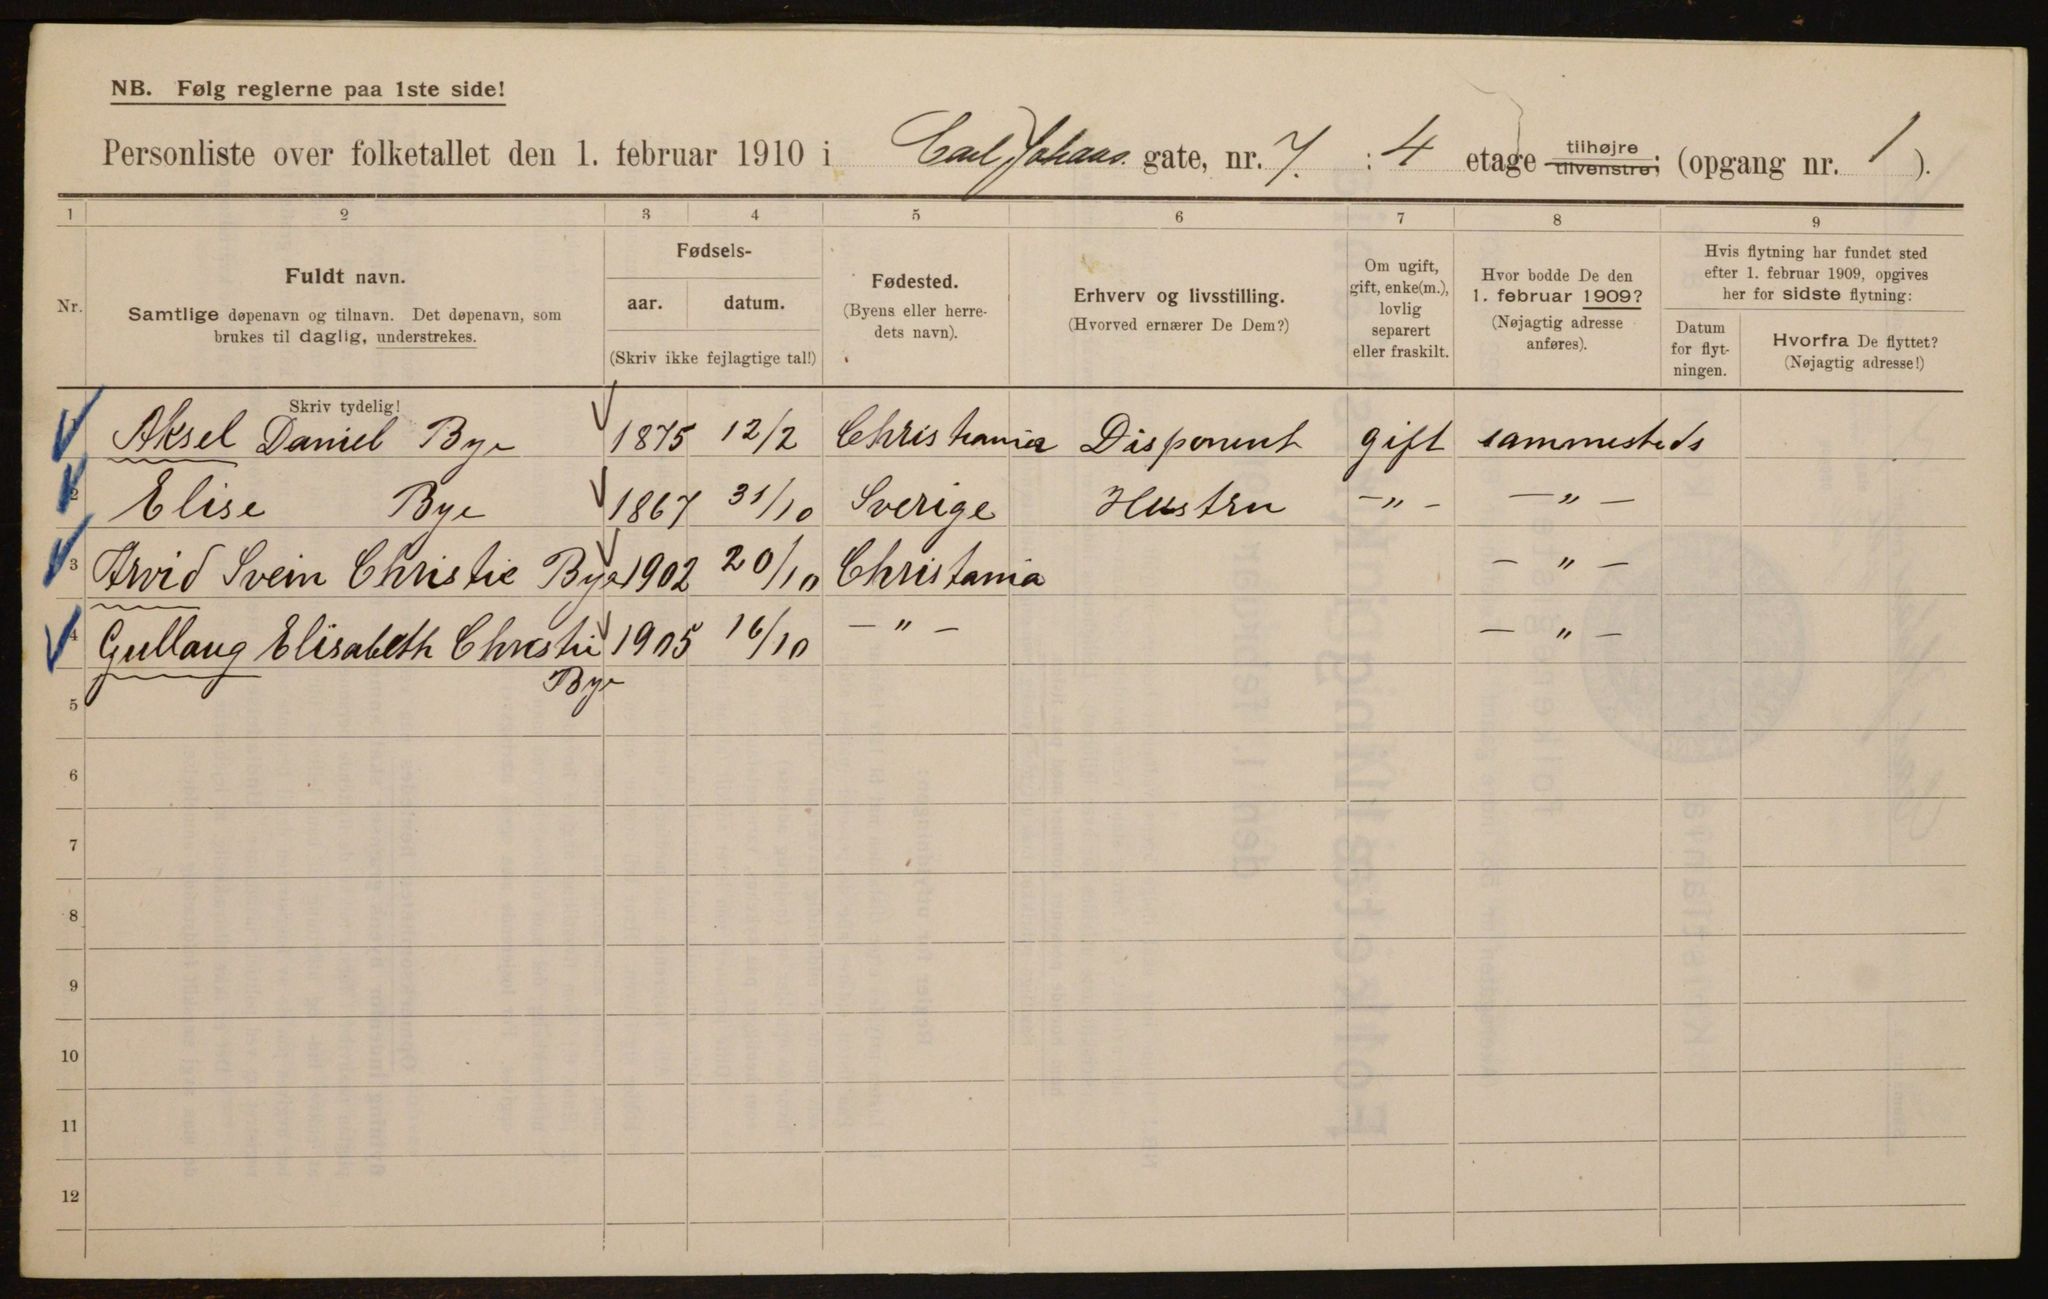 NB. Følg reglerne paa 1ste side!
Personliste over folketallet den 1. februar 1910 i Carl Johans gate, nr. 7. : 4 etage tilhøjre tilvenstre; (opgang nr. 1).
1 2 3 4 5 6 7 8 9
Nr.
Fuldt navn.
Samtlige døpenavn og tilnavn. Det døpenavn, som
brukes til daglig, understrekes.
Skriv tydelig!
Fødsels-
aar. datum.
(Skriv ikke fejlagtige tal!)
Fødested.
(Byens eller herre-
dets navn).
Erhverv og livsstilling.
(Hvorved ernærer De Dem?)
Om ugift,
gift, enke(m.),
lovlig
separert
eller fraskilt.
Hvor bodde De den
1. februar 1909?
(Nøjagtig adresse
anføres).
Hvis flytning har fundet sted
efter 1. februar 1909, opgives
her for sidste flytning:
Datum
for flyt-
ningen.
Hvorfra De flyttet?
(Nøjagtig adresse!)
Aksel Daniel Bye 1875 12/2 Christiania Disponent gift sammesteds
2 Elise Bye 1867 31/10 Sverige Hustru -"- -"-
3 Arvid Svein Christie Bye 1902 20/10 Christania -"-
4 Gullaug Elisabeth Christie 1905 16/10 -"- -"-
Bye
5
6
7
8
9
10
11
12